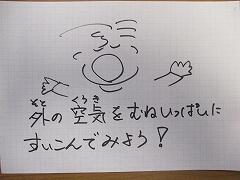 外の空気をむねいっぱいに
すいこんでみよう!